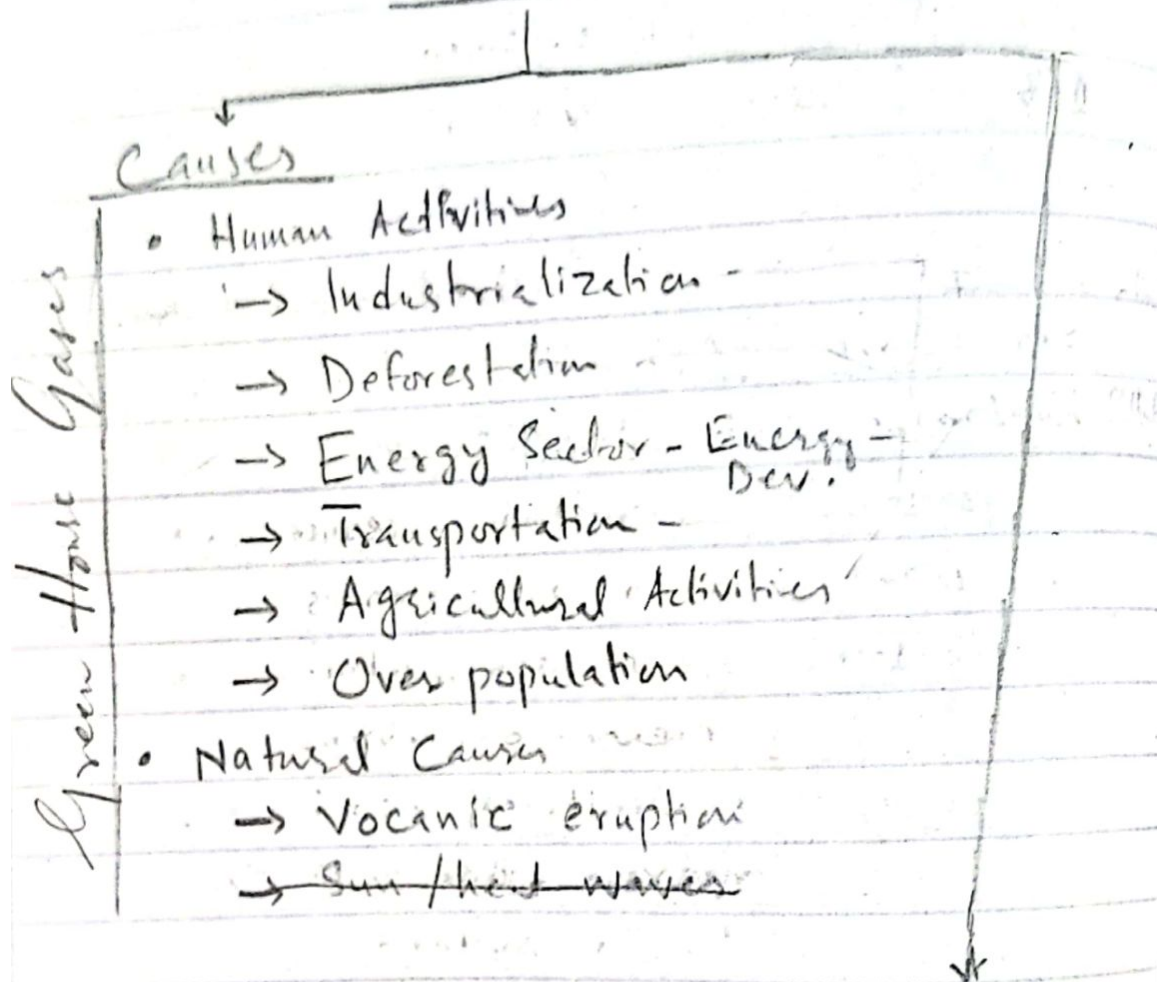 Causes
Green House Gases
• Human Activities
→ Industrialization -
→ Deforestation -
→ Energy Sector - Energy -
Dev.
→ Transportation -
→ Agricultural Activities
→ Over population
• Natural Causes
→ Vocanic eruption
→ Sun/heat waves